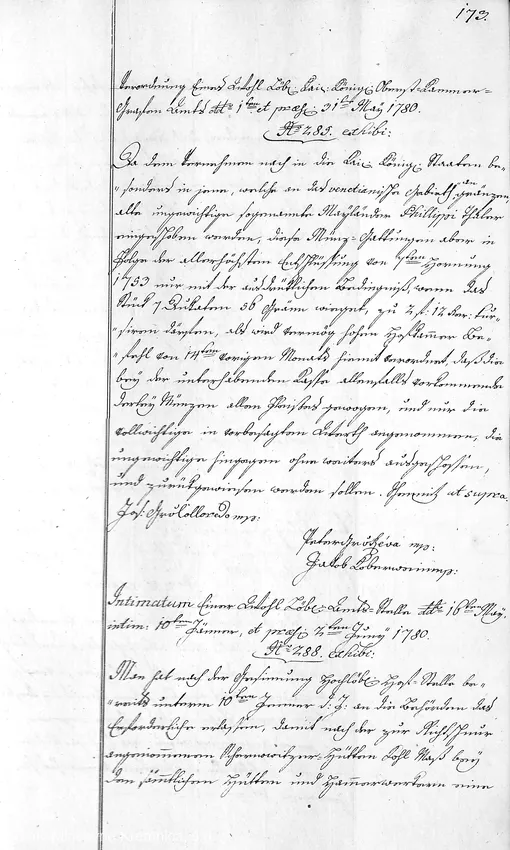 173.
Verordnung Eines Wohl Löbl: Kais: Königl: Oberst-Kammer-
Grafen Amts dtto 1ten et præs: 31ten May 1780.
No 285. exhibi:
Da dem Vernehmen nach in die Kais: Königl: Staaten be-
sonders in jene, welche an das venetianische Gebieth angränzen,
alte ungewichtige sogenannte Mayländer Phillippi Thaler
eingeschoben werden, diese Münz-Gattungen aber in
Folge der allerhöchsten Entschlüssung von ten Hornung
1753 nur mit der ausdrücklichen Bedingniß, wenn das
Stück 7 Dukaten 56 Grän wieget, zu 2 f: 12 Xer: cur-
siren därfen, als wird vermög hohen Hofkammer Be-
fehl von 14ten vorigen Monats hiemit verordnet, daß die
bey der unterhabenden Kasse allenfalls vorkommende
derley Münzen allen Fleißes gewogen, und nur die
vollwichtige in vorbesagten Werth angenommen, die
ungewichtige hingegen ohne weiters ausgeschossen,
und zurückgewiesen werden sollen. Schemnitz ut supra.
Jos: Gr: Colloredo mp:
Peter mp:
Jakob mp:
Intimatum Einer Wohl Löbl: Amts-Stelle dtto 16ten May.
intim: 10ten Jäner, et præs: 2ten Juny 1780.
No 288. exhibi:
Man hat nach der Gesinnung Hochlöbl: Hof-Stelle be-
reits unterm 10ten Jenner d: J: an die Behörden das
Erforderliche erlassen, damit nach der zur Richtschnur
angenommenen Hütten Kohl Maß bey
den sämtlichen Hütten und Hammerwerkern eine